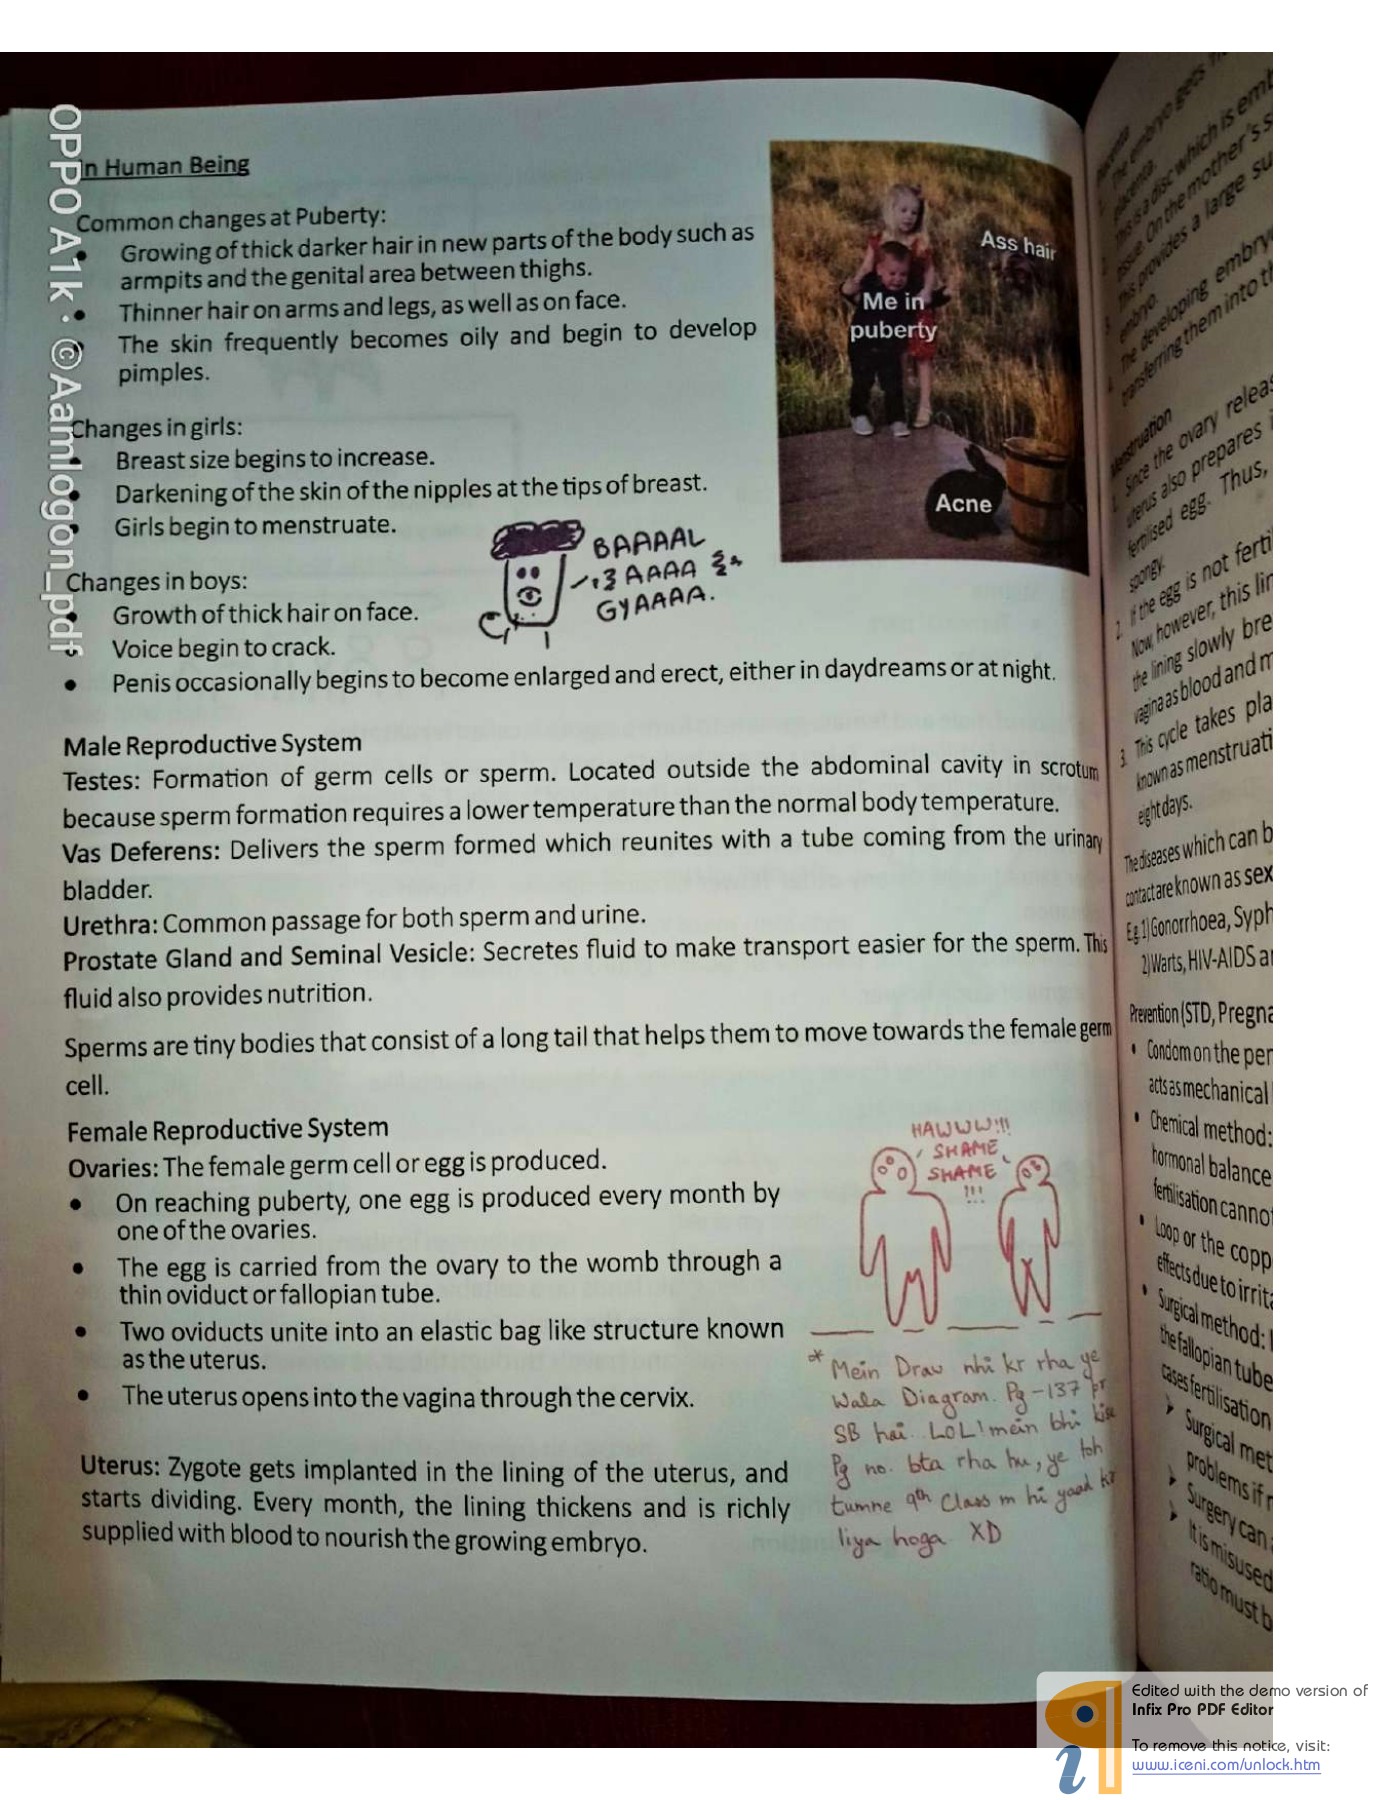 OPPO A1k · ©Aamlogon_pdf
In Human Being
Common changes at Puberty:
• Growing of thick darker hair in new parts of the body such as
armpits and the genital area between thighs.
• Thinner hair on arms and legs, as well as on face.
• The skin frequently becomes oily and begin to develop
pimples.
Ass hair
Me in
puberty
Acne
Changes in girls:
• Breast size begins to increase.
• Darkening of the skin of the nipples at the tips of breast.
• Girls begin to menstruate.
BAAAAL
AAAA
GYAAAA.
Changes in boys:
• Growth of thick hair on face.
• Voice begin to crack.
• Penis occasionally begins to become enlarged and erect, either in daydreams or at night.
Male Reproductive System
Testes: Formation of germ cells or sperm. Located outside the abdominal cavity in scrotum
because sperm formation requires a lower temperature than the normal body temperature.
Vas Deferens: Delivers the sperm formed which reunites with a tube coming from the urinary
bladder.
Urethra: Common passage for both sperm and urine.
Prostate Gland and Seminal Vesicle: Secretes fluid to make transport easier for the sperm. This
fluid also provides nutrition.
Sperms are tiny bodies that consist of a long tail that helps them to move towards the female germ
cell.
Female Reproductive System
Ovaries: The female germ cell or egg is produced.
• On reaching puberty, one egg is produced every month by
one of the ovaries.
• The egg is carried from the ovary to the womb through a
thin oviduct or fallopian tube.
• Two oviducts unite into an elastic bag like structure known
as the uterus.
• The uterus opens into the vagina through the cervix.
Uterus: Zygote gets implanted in the lining of the uterus, and
starts dividing. Every month, the lining thickens and is richly
supplied with blood to nourish the growing embryo.
HAWWW!!!
SHAME
SHAME
!!!
* Mein Draw nhi kr rha ye
Wala Diagram. Pg-137 pr
SB hai. LOL! mein bhi kise
Pg no. bta rha hu, ye toh
tumne 9th Class m hi yaad kr
liya hoga XD
The embryo gets
placenta.
This is a disc which is emb
tissue. On the mother's s
this provides a large su
embryo.
The developing embryo
transferring them into th
Menstruation
1. Since the ovary releas
uterus also prepares i
fertilised egg. Thus,
spongy.
2. If the egg is not ferti
Now, however, this lin
the lining slowly bre
vagina as blood and m
3. This cycle takes pla
known as menstruati
eight days.
The diseases which can b
contact are known as sex
Eg 1) Gonorrhoea, Syph
2) Warts, HIV-AIDS a
Prevention (STD, Pregna
• Condom on the pen
acts as mechanical
• Chemical method:
hormonal balance
fertilisation canno
• Loop or the copp
effects due to irrita
• Surgical method:
the fallopian tube
cases fertilisation
➤ Surgical met
problems if
➤ Surgery can
➤ It is misused
ratio must b
Edited with the demo version of
Infix Pro PDF Editor
To remove this notice, visit:
www.iceni.com/unlock.htm